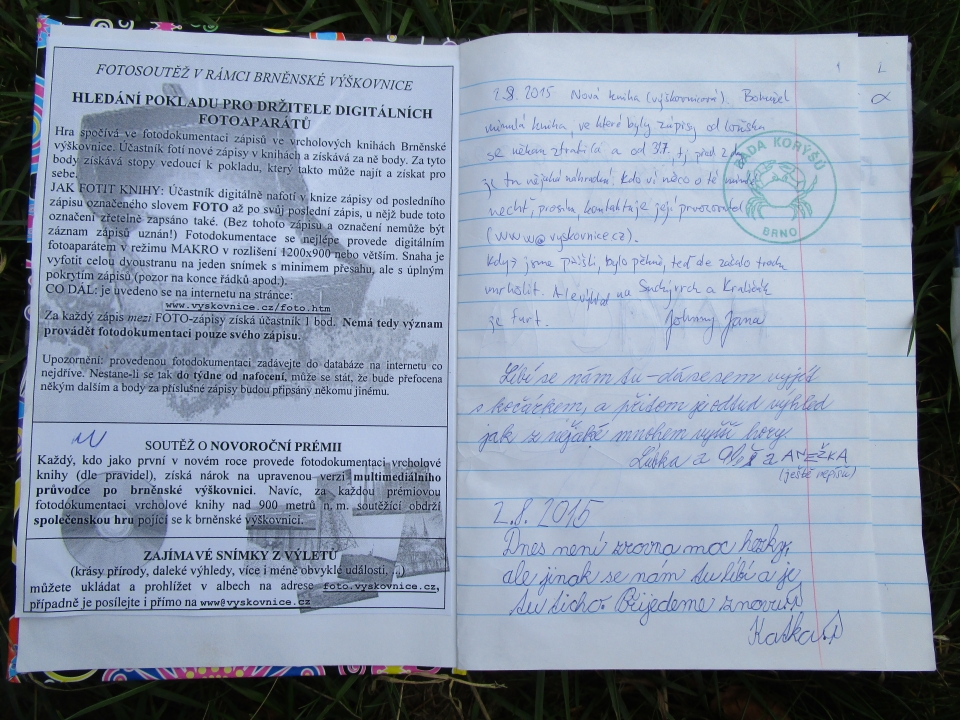 FOTOSOUTĚŽ V RÁMCI BRNĚNSKÉ VÝŠKOVNICE
HLEDÁNÍ POKLADU PRO DRŽITELE DIGITÁLNÍCH
FOTOAPARÁTŮ
Hra spočívá ve fotodokumentaci zápisů ve vrcholových knihách Brněnské
výškovnice. Účastník fotí nové zápisy v knihách a získává za ně body. Za tyto
body získává stopy vedoucí k pokladu, který takto může najít a získat pro
sebe.
JAK FOTIT KNIHY: Účastník digitálně nafotí v knize zápisy od posledního
zápisu označeného slovem FOTO až po svůj poslední zápis, u nějž bude toto
označení zřetelně zapsáno také. (Bez tohoto zápisu a označení nemůže být
záznam zápisů uznán!) Fotodokumentace se nejlépe provede digitálním
fotoaparátem v režimu MAKRO v rozlišení 1200x900 nebo větším. Snaha je
vyfotit celou dvoustranu na jeden snímek s minimem přesahu, ale s úplným
pokrytím zápisů (pozor na konce řádků apod.).
CO DÁL: je uvedeno se na internetu na stránce:
www.vyskovnice.cz/foto.htm
Za každý zápis mezi FOTO-zápisy získá účastník 1 bod. Nemá tedy význam
provádět fotodokumentaci pouze svého zápisu.
Upozornění: provedenou fotodokumentaci zadávejte do databáze na internetu co
nejdříve. Nestane-li se tak do týdne od nafocení, může se stát, že bude přefocena
někým dalším a body za příslušné zápisy budou připsány někomu jinému.
SOUTĚŽ O NOVOROČNÍ PRÉMII
Každý, kdo jako první v novém roce provede fotodokumentaci vrcholové
knihy (dle pravidel), získá nárok na upravenou verzi multimediálního
průvodce po brněnské výškovnici. Navíc, za každou prémiovou
fotodokumentaci vrcholové knihy nad 900 metrů n. m. soutěžící obdrží
společenskou hru pojící se k brněnské výškovnici.
ZAJÍMAVÉ SNÍMKY Z VÝLETŮ
(krásy přírody, daleké výhledy, více i méně obvyklé události, ...)
můžete ukládat a prohlížet v albech na adrese foto.vyskovnice.cz,
případně je posílejte i přímo na www@vyskovnice.cz
2.8. 2015 Nová kniha (výškovnicová). Bohužel
minulá kniha, ve které byly zápisy od loňska
se někam ztratila a od 3.7., tj. před
je tu nějaká náhradní. Kdo ví něco o té minulé
nechť, prosím kontaktuje její provozovatel
(www@vyskovnice.cz).
Když jsme přišli, bylo pěkně, teď de začalo trochu
mrholit. Ale výhled na Suchý vrch a Králičák
je furt. Johnny Jana
ŘADA KORÝŠŮ
BRNO
Líbí se nám tu - dá se sem vyjet
s kočárkem, a přitom je odsud výhled
jak z nějaké mnohem vyšší hory.
Lubka a Aleš a ANEŽKA
(ještě nepíšu)
2.8. 2015
Dnes není zrovna moc hezky,
ale jinak se nám tu líbí a je
tu ticho. Přijedeme znovu.
Katka